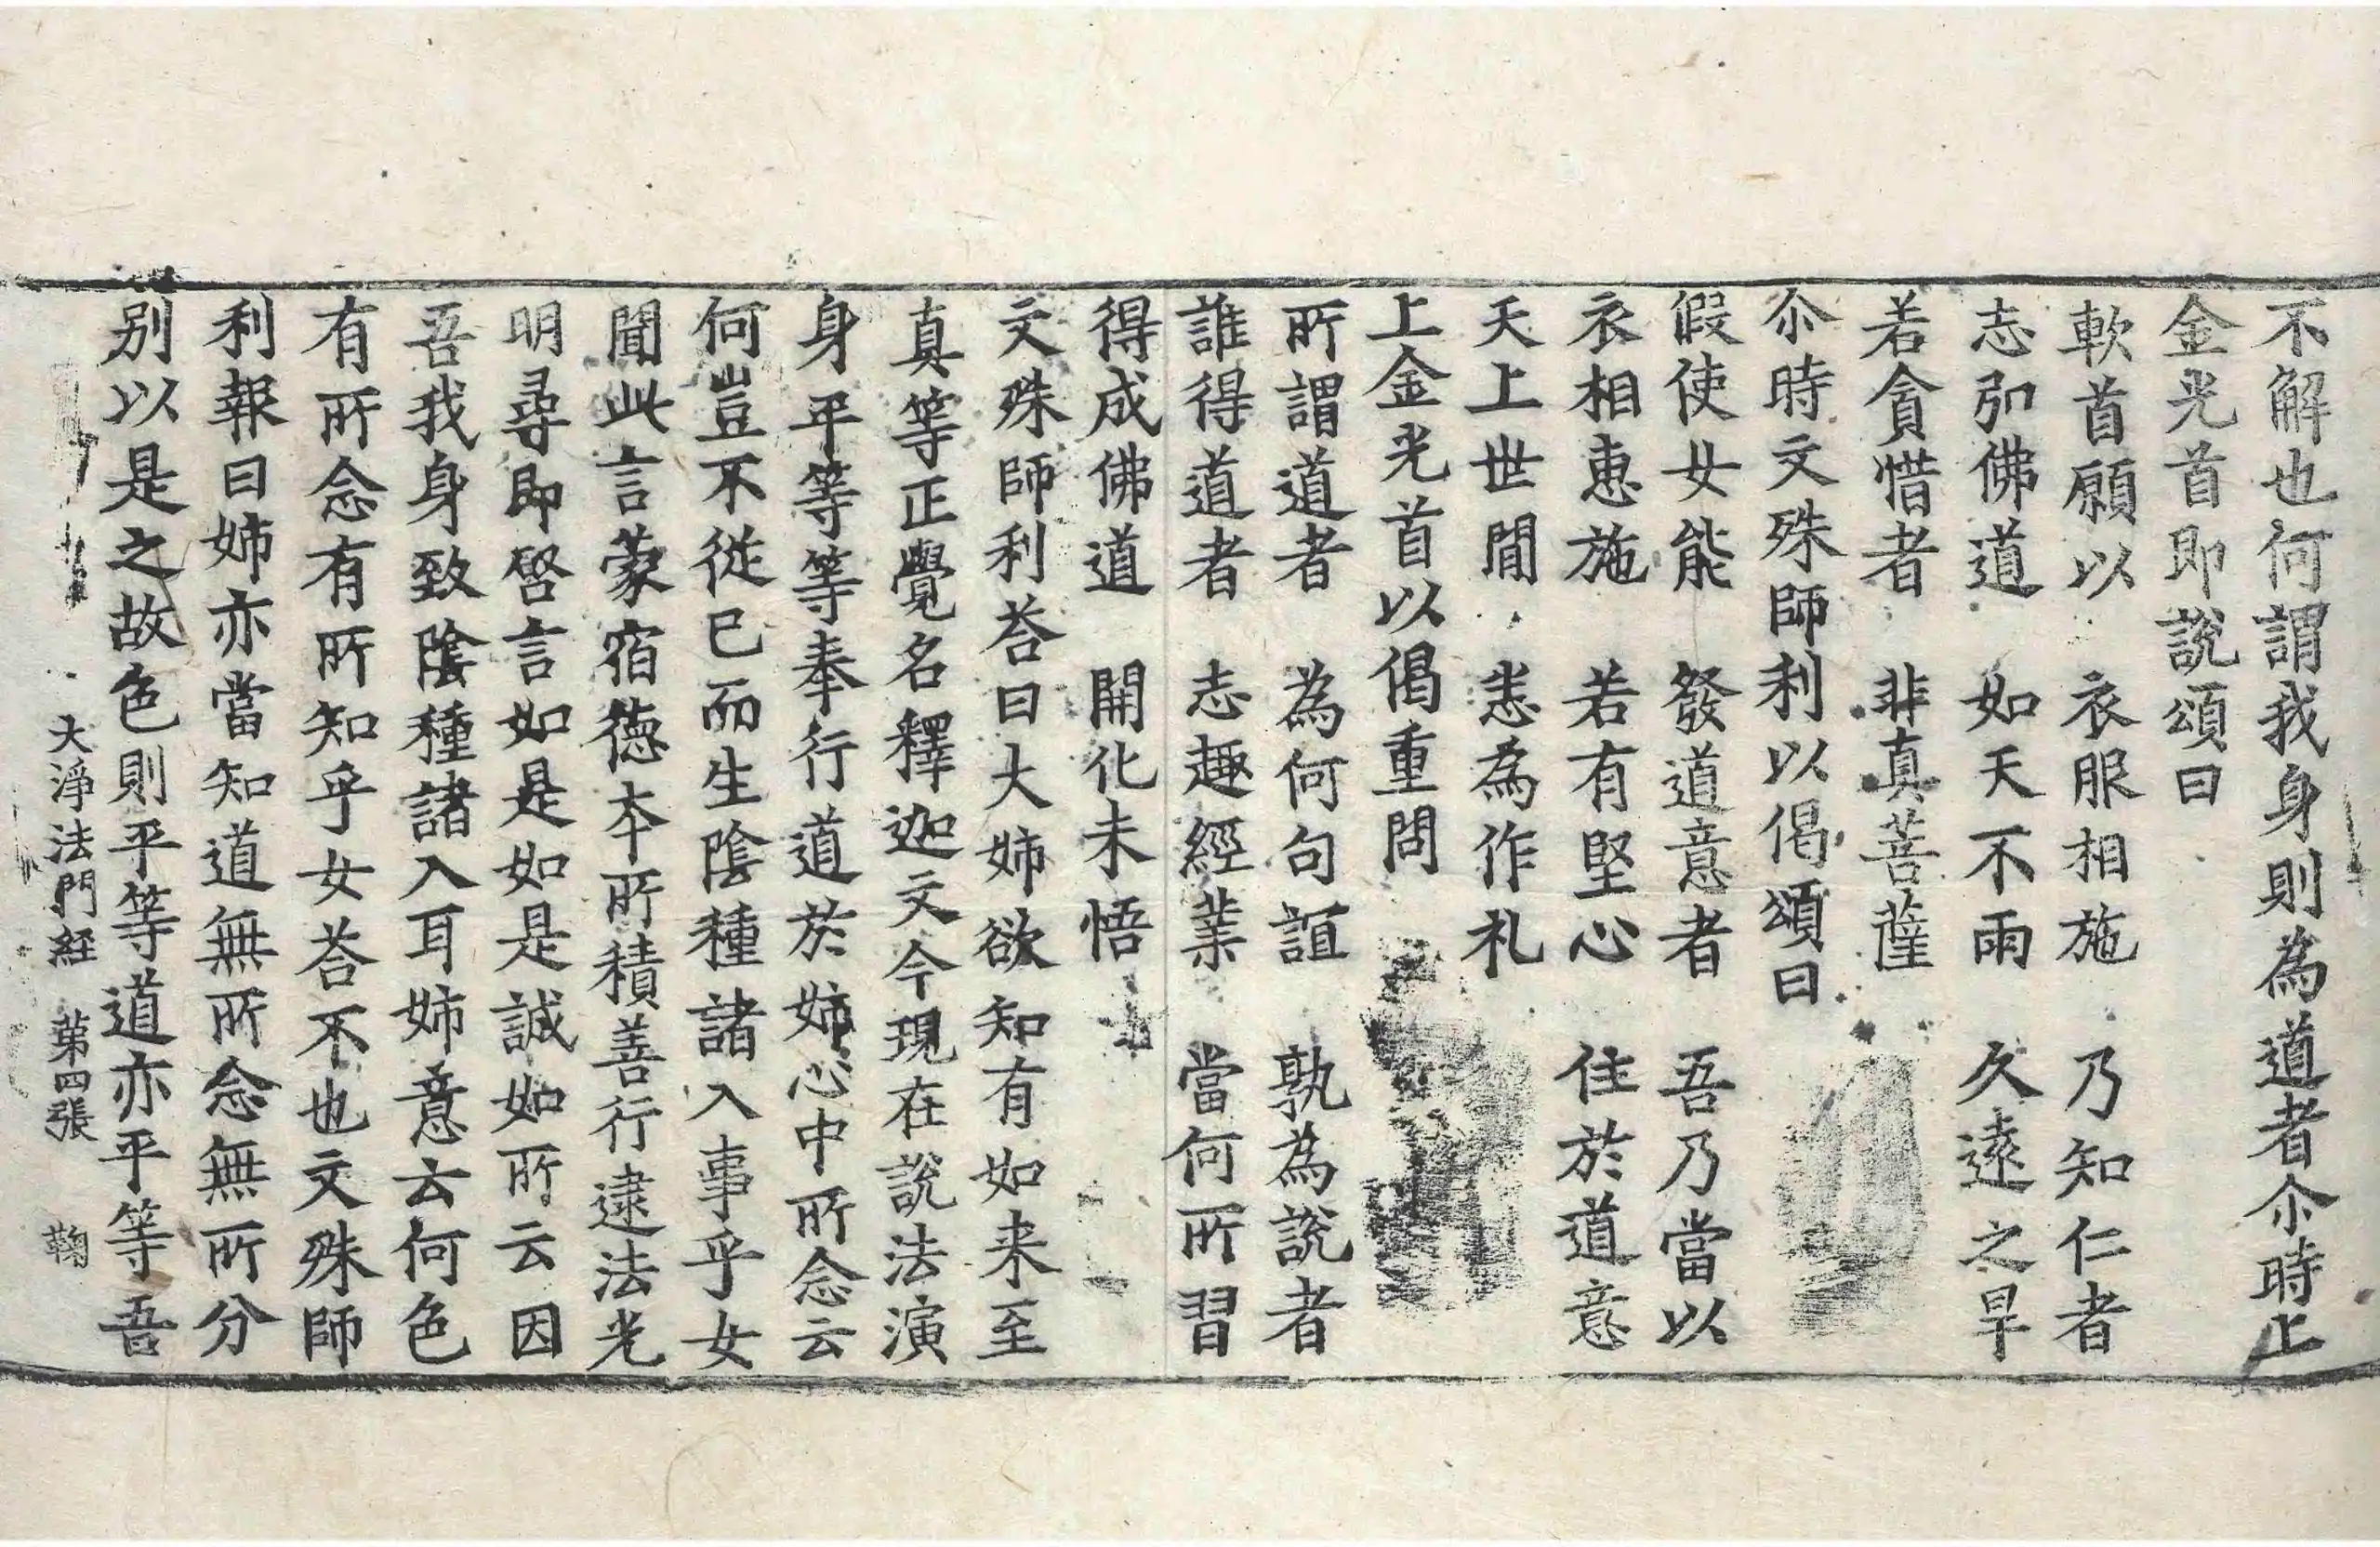 不解也何謂我身則為道者尒時上
金光首即說頌曰
軟首願以　衣服相施　乃知仁者
志弘佛道　如天不雨　久遠之旱
若貪惜者　非真菩薩
尒時文殊師利以偈頌曰
假使女能　發道意者　吾乃當以
衣相惠施　若有堅心　住於道意
天上世間　悉為作礼
上金光首以偈重問
所謂道者　為何句誼　孰為說者
誰得道者　志趣經業　當何所習
得成佛道　開化未悟
文殊師利荅曰大姉欲知有如来至
真等正覺名釋迦文今現在說法演
身平等等奉行道於姉心中所念云
何豈不從已而生陰種諸入事乎女
聞此言蒙宿徳夲所積善行逮法光
明尋即啓言如是如是誠如所云因
吾我身致陰種諸入耳姉意云何色
有所念有所知乎女荅不也文殊師
利報曰姉亦當知道無所念無所分
别以是之故色則平等道亦平等吾
大淨法門経　苐四張　鞠